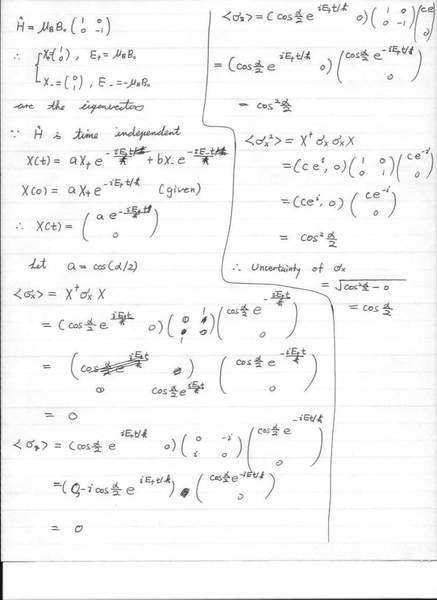 Ĥ = μ_B B₀ (1 0 / 0 -1)
∴ { X₊ = (1 / 0), E₊ = μ_B B₀
X₋ = (0 / 1), E₋ = -μ_B B₀
are the eigenvectors
∵ Ĥ is time independent
X(t) = a X₊ e^(-iE₊t/ħ) + b X₋ e^(-iE₋t/ħ)
X(0) = a X₊ e^(-iE₊t/ħ) (given)
∴ X(t) = (a e^(-iE₊t/ħ) / 0)
Let a = cos(α/2)
<σₓ> = X† σₓ X
= (cos α/2 e^(iE₊t/ħ) 0) (0 1 / 1 0) (cos α/2 e^(-iE₊t/ħ) / 0)
= (0 cos α/2 e^(iE₊t/ħ)) (cos α/2 e^(-iE₊t/ħ) / 0)
= 0
= (cos α/2 e^(iE₊t/ħ) 0) (0 -i / i 0) (cos α/2 e^(-iEt/ħ) / 0)
= (0, -i cos α/2 e^(iE₊t/ħ)) (cos α/2 e^(-iEt/ħ) / 0)
= 0
<σ_z> = (cos α/2 e^(iE₊t/ħ) 0) (1 0 / 0 -1) (ce / 0)
= (cos α/2 e^(iE₊t/ħ) 0) (cos α/2 e^(-iE₊t/ħ) / 0)
= cos² α/2
<σₓ²> = X† σₓ σₓ X
= (c eⁱ, 0) (1 0 / 0 1) (c e⁻ⁱ / 0)
= (c eⁱ, 0) (c e⁻ⁱ / 0)
= cos² α/2
∴ Uncertainty of σₓ
= √(cos² α/2 - 0)
= cos α/2